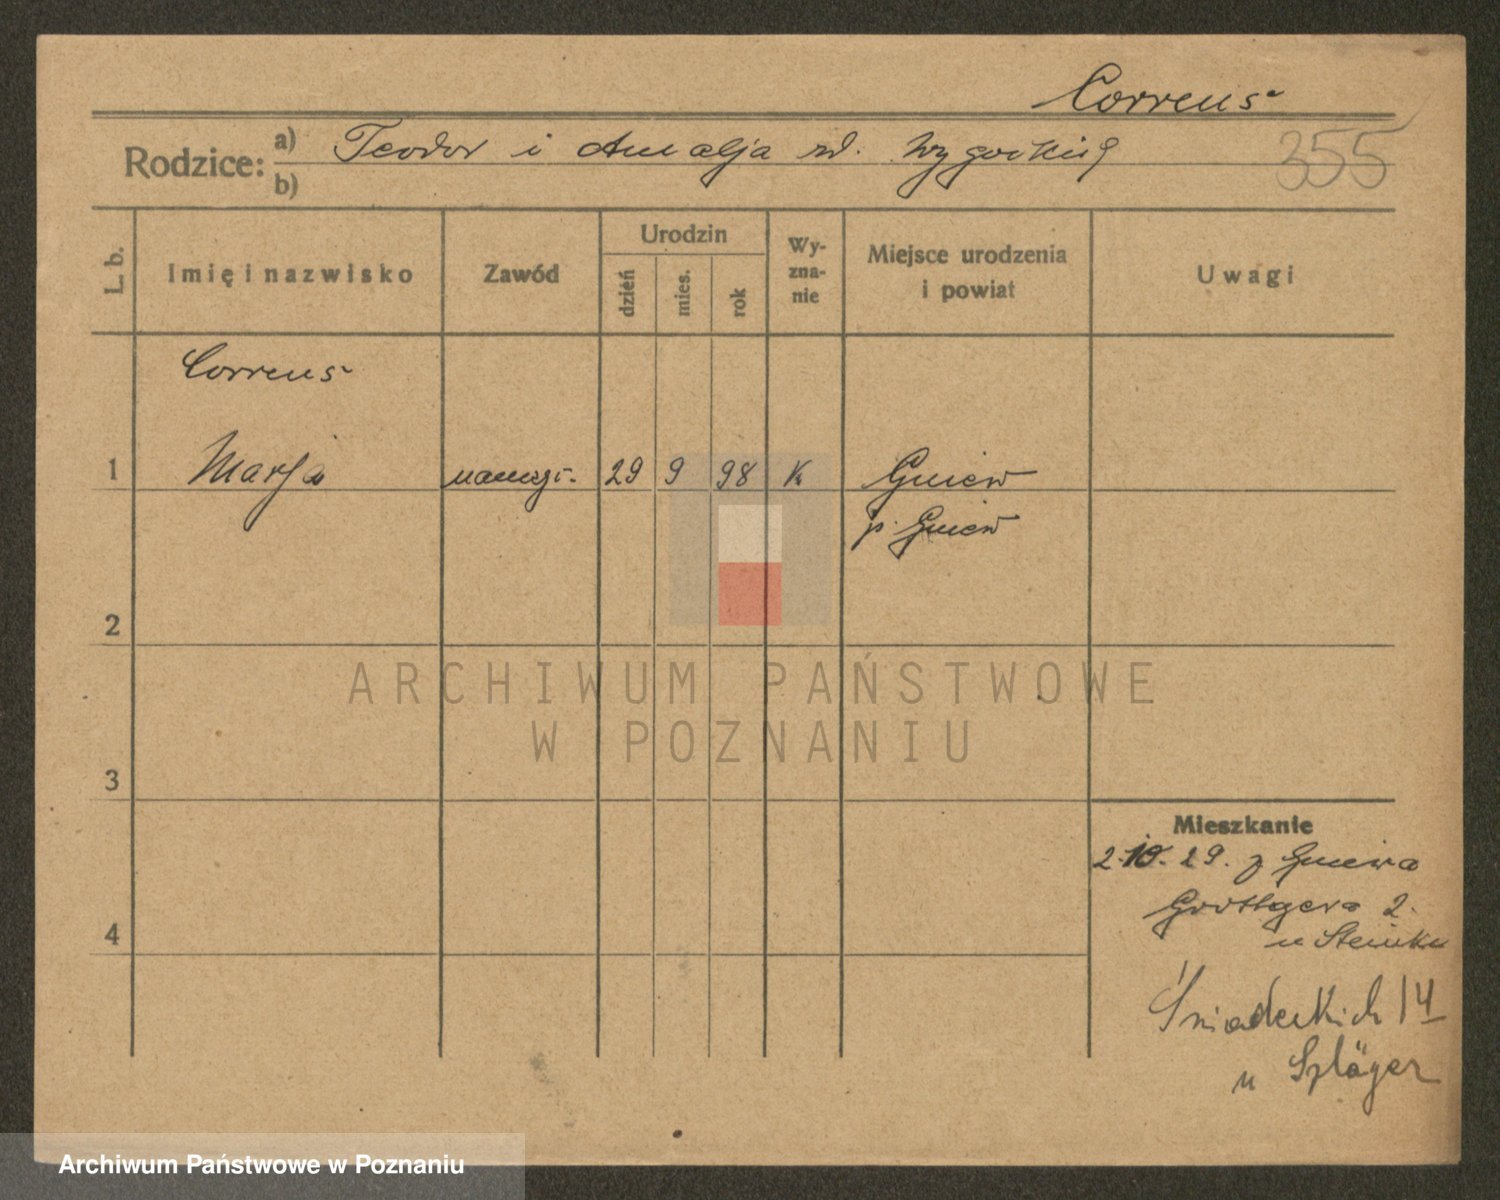 Correns
355
Rodzice: a) Teodor i Amalja zd.
b)
L. b. Imię i nazwisko Zawód Urodzin dzień mies. rok Wyznanie Miejsce urodzenia i powiat Uwagi
Correns
1 Marja 29 9 98 K Gniew
p. Gniew
2
3
4
Mieszkanie
2.10.29. z Gniewa
Grottgera 2.
u Steinke
Śniadeckich 14
u Szläger
ARCHIWUM PAŃSTWOWE
W POZNANIU
Archiwum Państwowe w Poznaniu